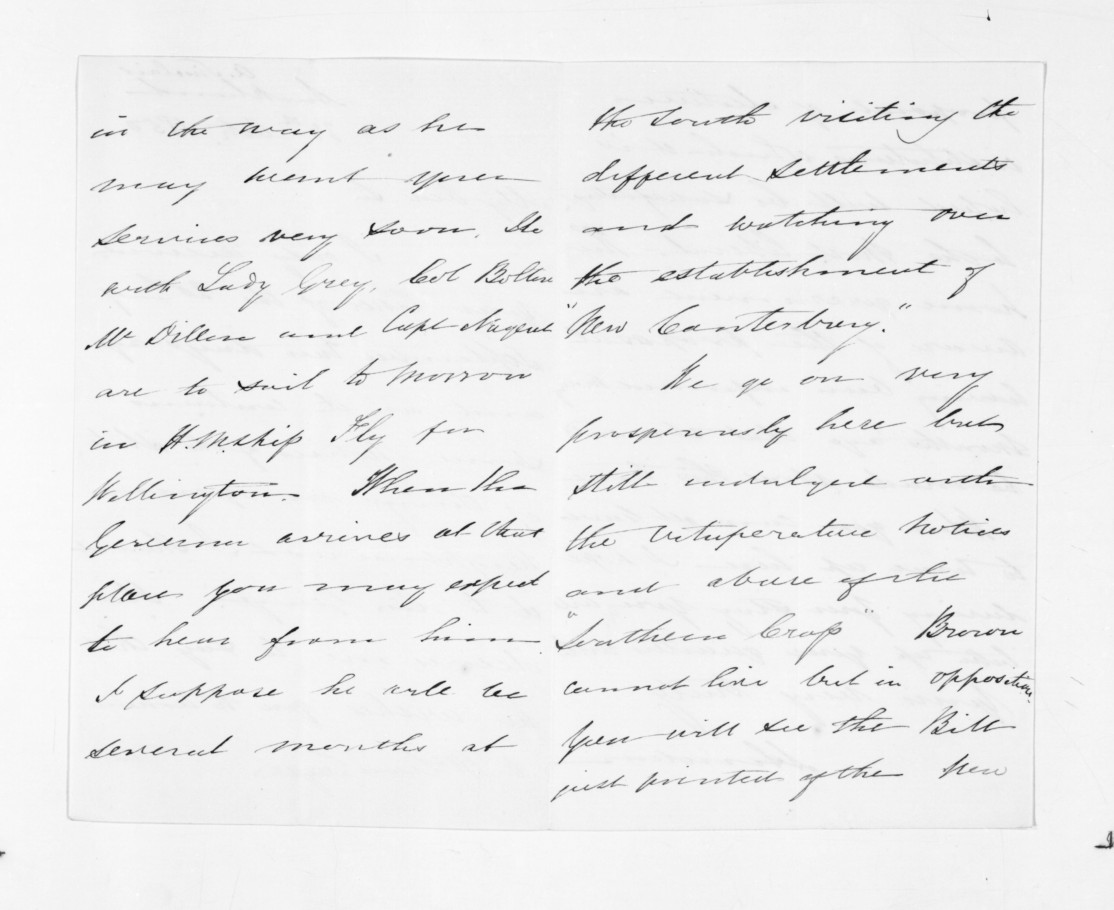 in the way as he
may want your
services very soon. He
with Lady Grey, Col Bolton
Mr Dillon and Capt Nugent
are to sail to morrow
in H.M. ship Fly for
Wellington. When the
Governor arrives at that
place you may expect
to hear from him.
I suppose he will be
several months at
the South visiting the
different settlements
and watching over
the establishment of
"New Canterbury."
We go on very
prosperously here but
still indulged with
the vituperative notices
and abuse of the
"Southern Cross" Brown
cannot live but in opposition.
You will see the Bill
just printed of the New